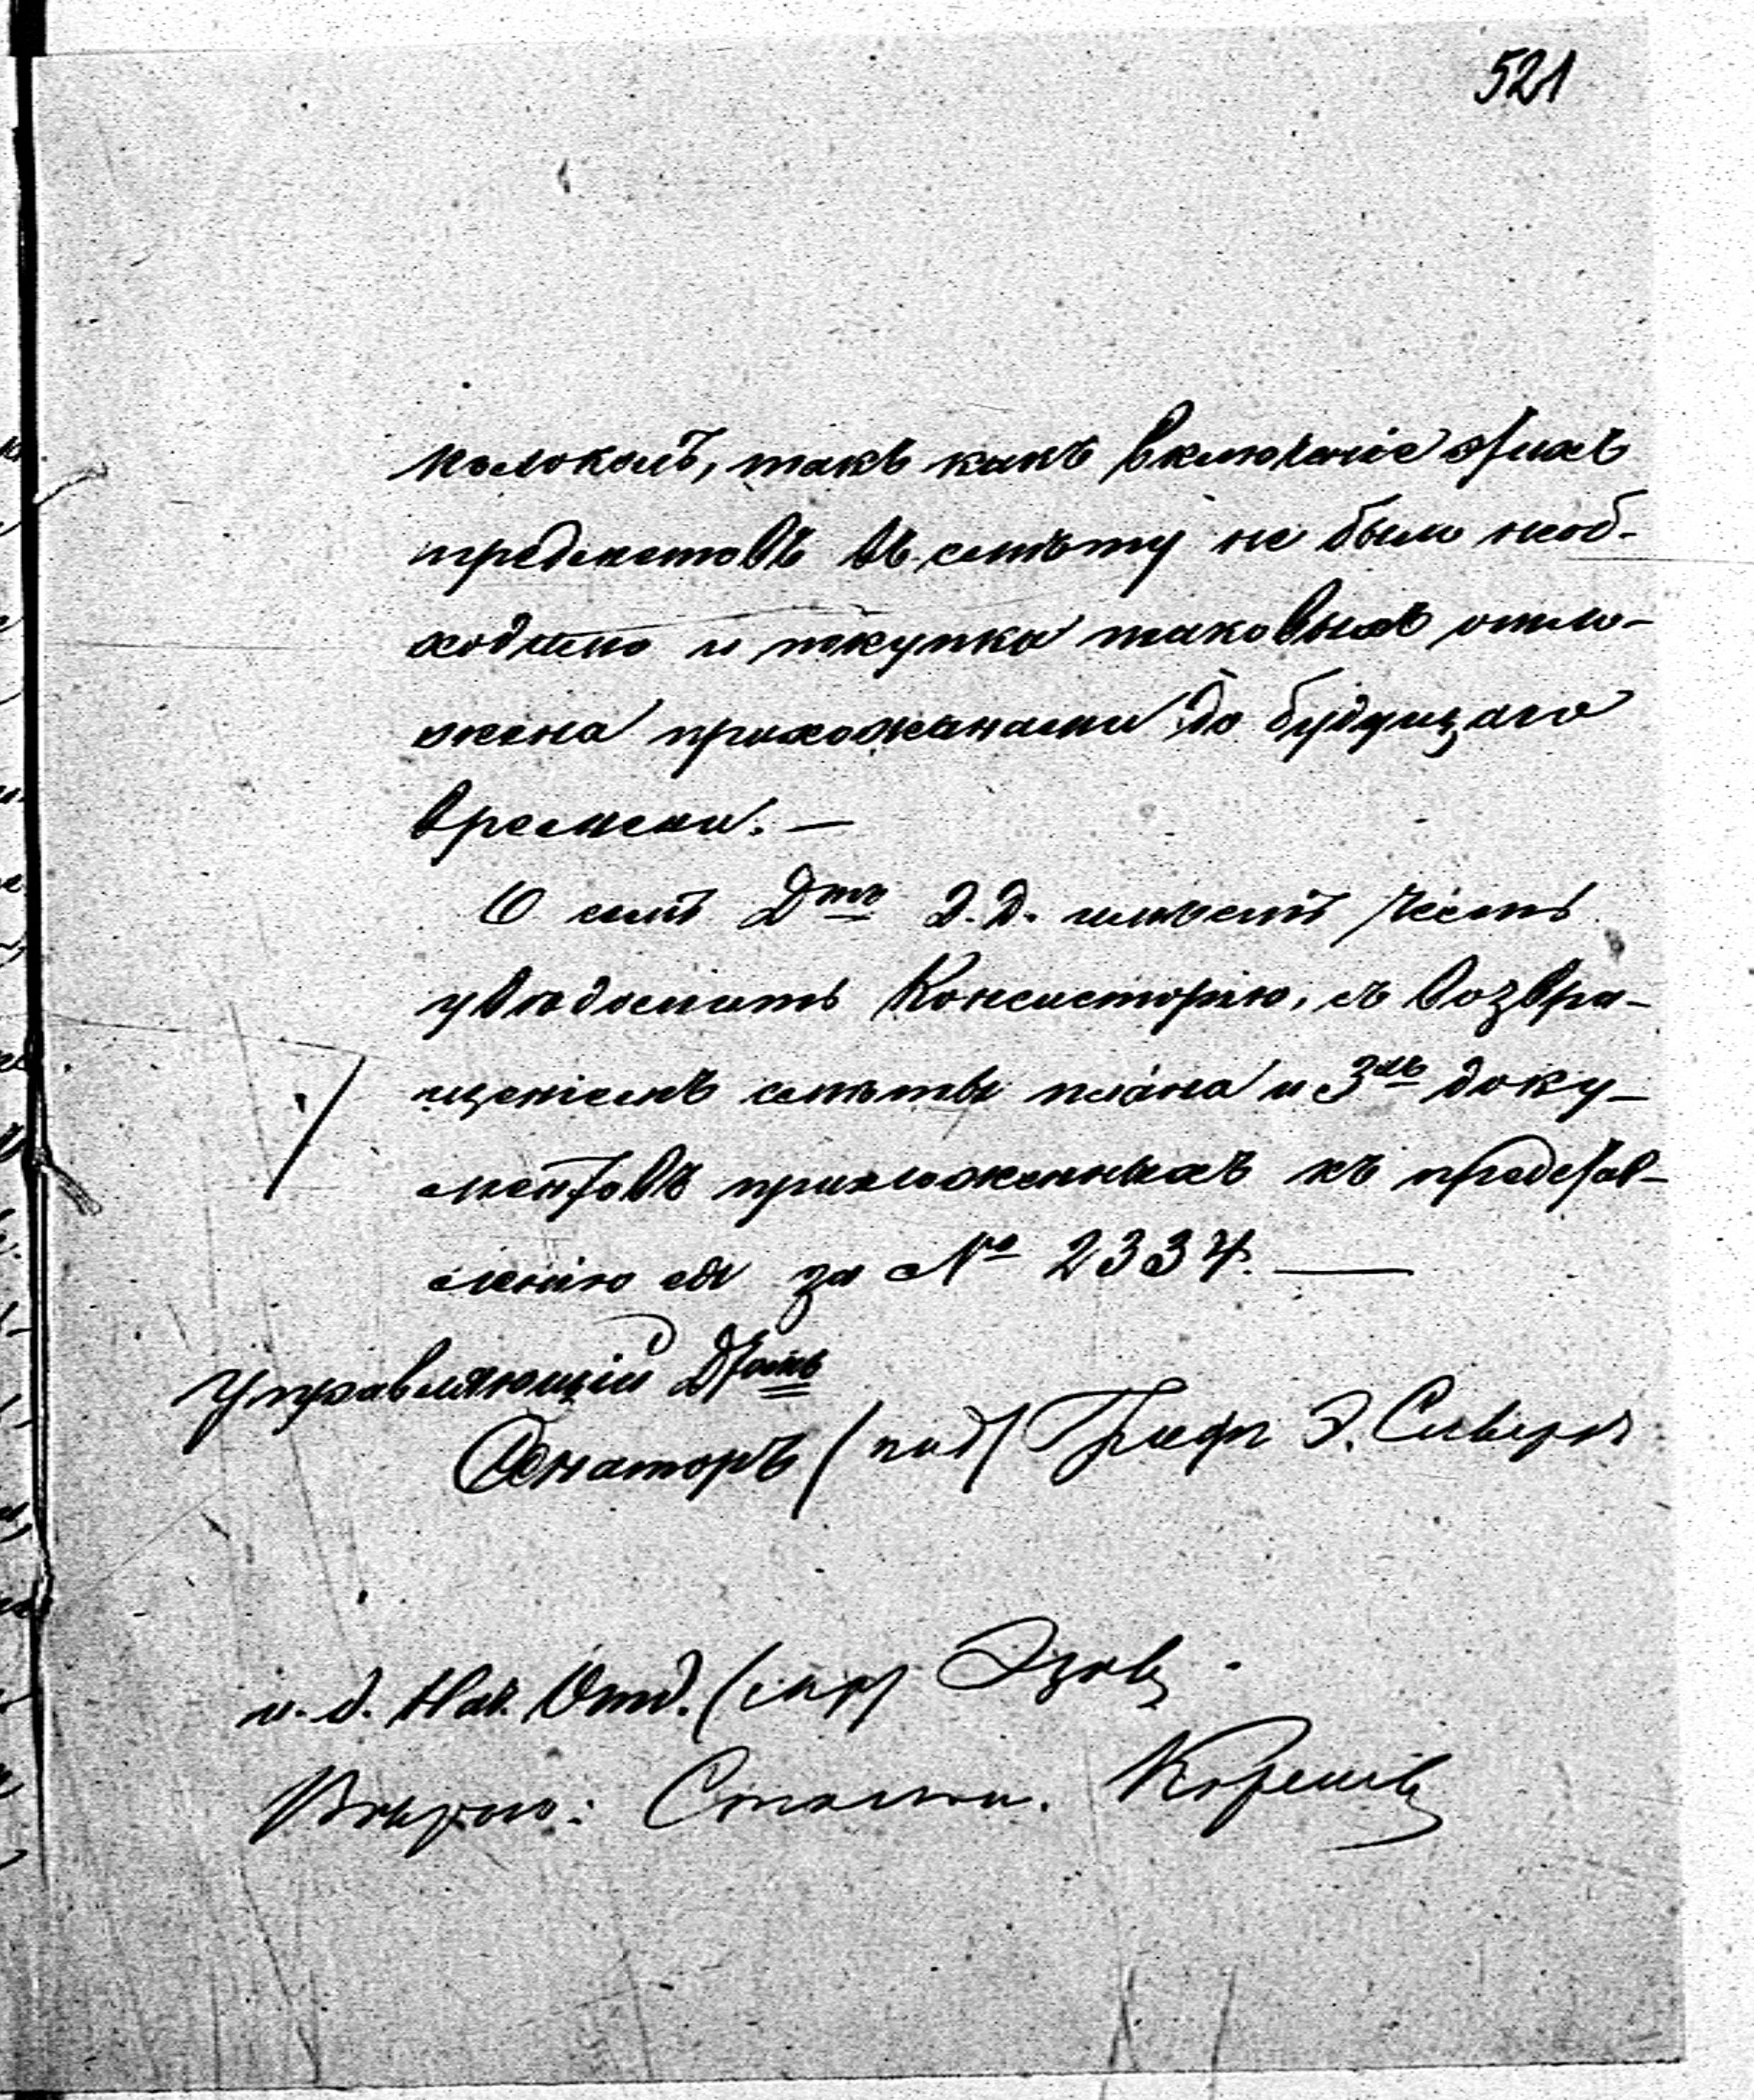 521
колоколъ, такъ какъ включеніе этихъ
предметовъ въ смѣту не было необ-
ходимо и покупка таковыхъ отло-
жена прихожанами до будущаго
времени. —
О семъ Дтъ Д. Д. имѣетъ честь
увѣдомить Консисторію, съ возвра-
щеніемъ смѣты плана и 3хъ доку-
ментовъ приложенныхъ къ представ-
ленію ея за № 2334. —
Управляющій Дтомъ
Сенаторъ (под) Графъ Э. Сиверсъ
и. д. Нач. Отд. (скр) Эзовъ
Вѣрно: